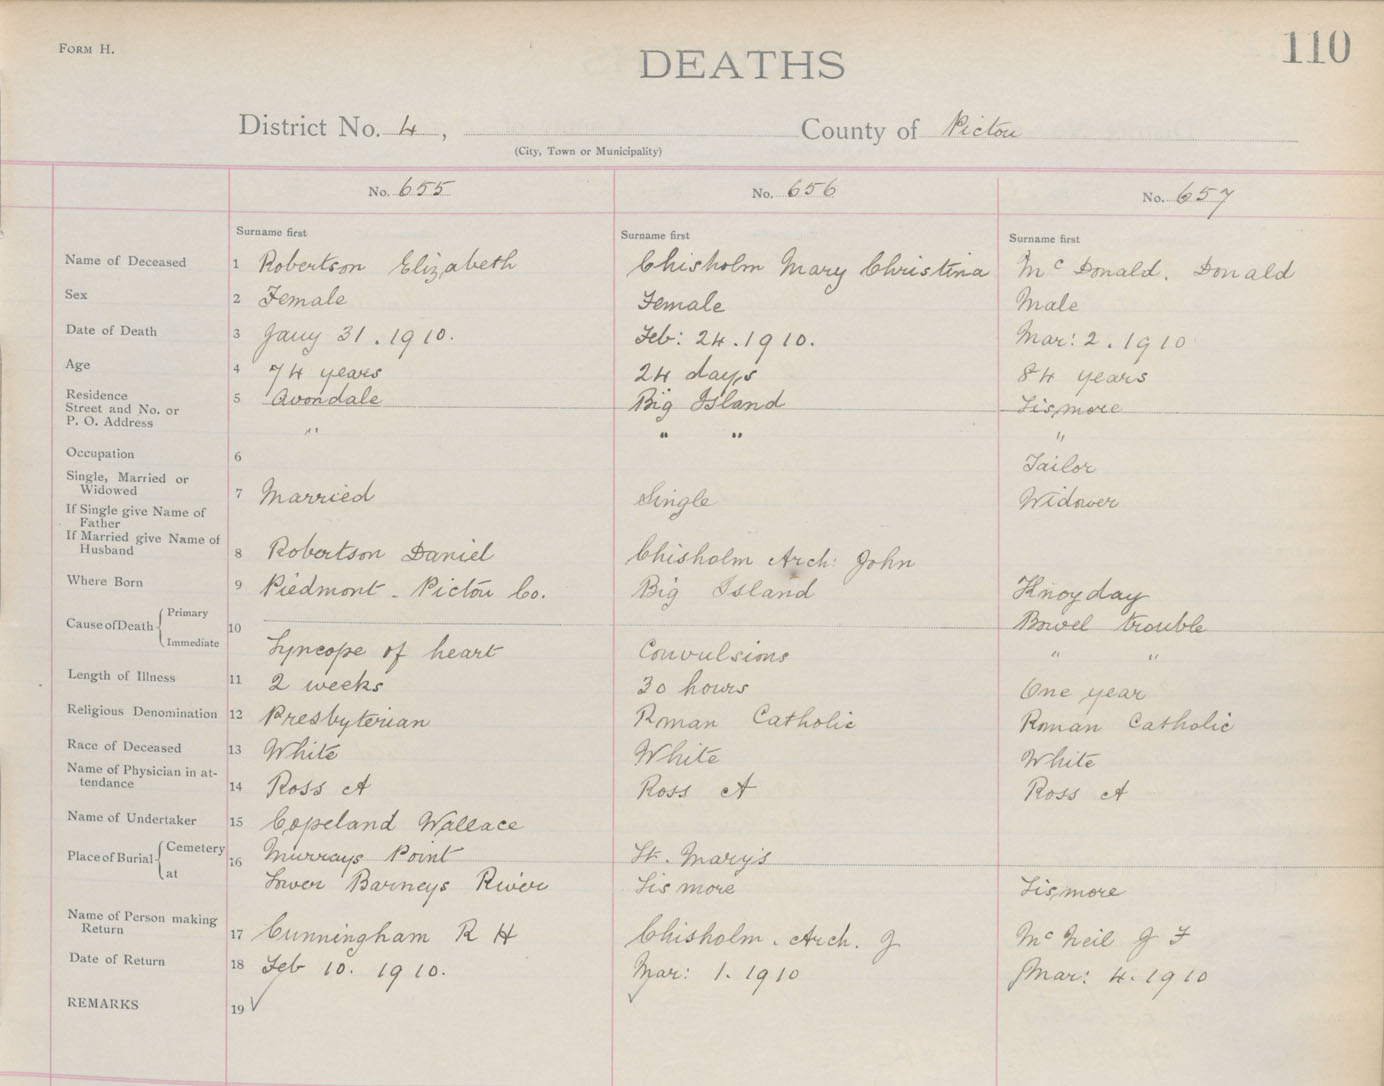 FORM H.
110
DEATHS
District No. 4, County of Pictou
(City, Town or Municipality)
No. 655 No. 656 No. 657
Surname first Surname first Surname first
Name of Deceased 1 Robertson Elizabeth Chisholm Mary Christina Mc Donald. Donald
Sex 2 Female Female Male
Date of Death 3 Jany 31. 1910. Feb: 24. 1910. Mar: 2. 1910
Age 4 74 years 24 days 84 years
Residence 5 Avondale Big Island Lismore
Street and No. or
P. O. Address " " " "
Occupation 6 Tailor
Single, Married or
Widowed 7 Married Single Widower
If Single give Name of
Father
If Married give Name of
Husband 8 Robertson Daniel Chisholm Arch: John
Where Born 9 Piedmont - Pictou Co. Big Island Knoyday
Cause of Death { Primary 10 Bowel trouble
Immediate Syncope of heart Convulsions " "
Length of Illness 11 2 weeks 30 hours One year
Religious Denomination 12 Presbyterian Roman Catholic Roman Catholic
Race of Deceased 13 White White White
Name of Physician in at-
tendance 14 Ross A Ross A Ross A
Name of Undertaker 15 Copeland Wallace
Place of Burial { Cemetery 16 Murrays Point St. Mary's
at Lower Barneys River Lismore Lismore
Name of Person making
Return 17 Cunningham R H Chisholm. Arch. J Mc Neil J F
Date of Return 18 Feb 10. 1910. Mar: 1. 1910 Mar: 4. 1910
REMARKS 19